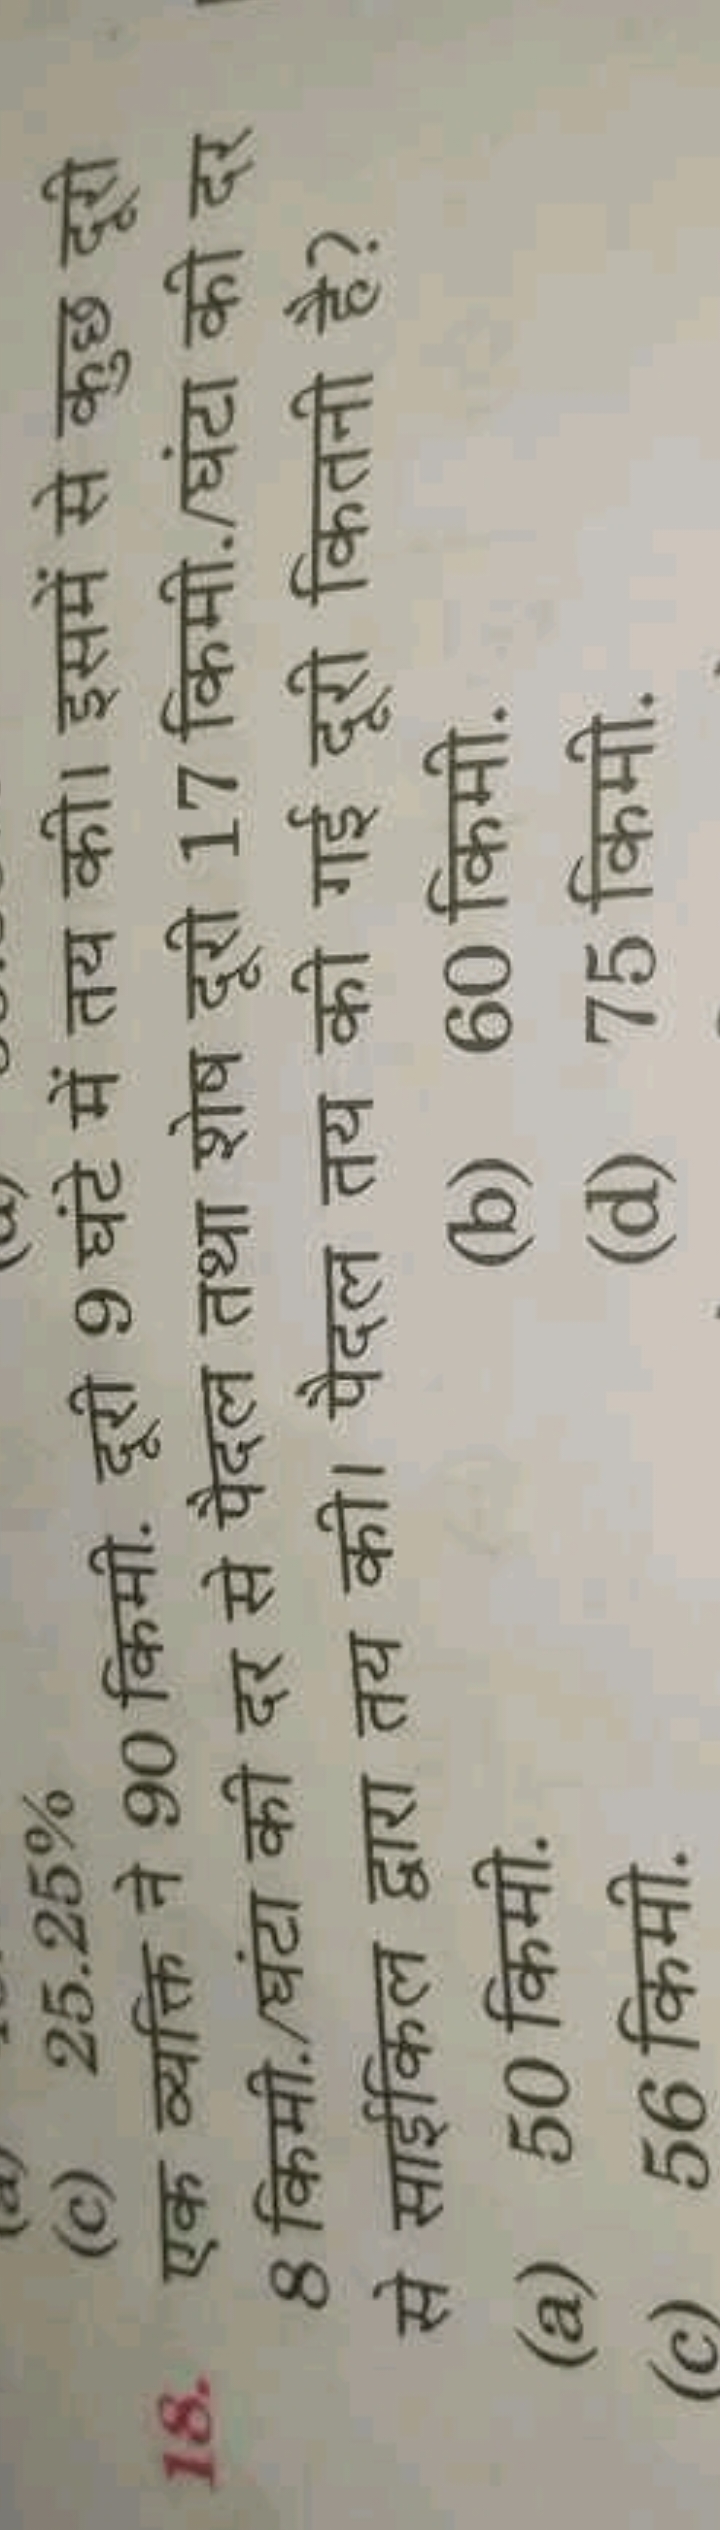 (c) 25.25%
18. एक व्यक्ति ने 90 किमी. दूरी 9 घंटे में तय की। इसमें से कुछ दूरी
8 किमी./घंटा की दर से पैदल तथा शेष दूरी 17 किमी./घंटा की दर
से साईकिल द्वारा तय की। पैदल तय की गई दूरी कितनी है?
(a) 50 किमी. (b) 60 किमी.
(c) 56 किमी. (d) 75 किमी.